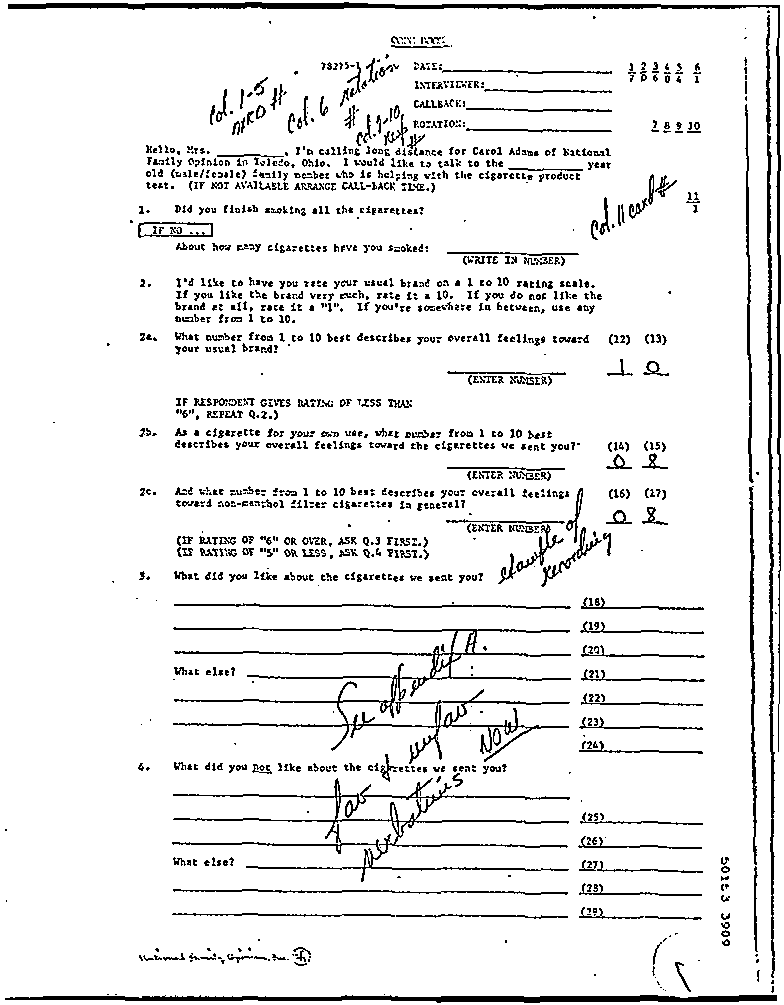 CODE BOOK
78275-1 DATE:
1 2 3 4 5 6
7 0 6 0 4 1
INTERVIEWER:
CALLBACK:
ROTATION:
7 8 9 10
Col. 1-5
MRD #
Col. 6 rotation
#
Col. 7-10
resp #
Hello, Mrs. ________, I'm calling long distance for Carol Adams of National
Family Opinion in Toledo, Ohio. I would like to talk to the ________ year
old (male/female) family member who is helping with the cigarette product
test. (IF NOT AVAILABLE ARRANGE CALL-BACK TIME.)
Col. 11 card #
11
1
1. Did you finish smoking all the cigarettes?
IF NO ...
About how many cigarettes have you smoked:
(WRITE IN NUMBER)
2. I'd like to have you rate your usual brand on a 1 to 10 rating scale.
If you like the brand very much, rate it a 10. If you do not like the
brand at all, rate it a "1". If you're somewhere in between, use any
number from 1 to 10.
2a. What number from 1 to 10 best describes your overall feelings toward (12) (13)
your usual brand?
1 0
(ENTER NUMBER)
IF RESPONDENT GIVES RATING OF LESS THAN
"6", REPEAT Q.2.)
2b. As a cigarette for your own use, what number from 1 to 10 best
describes your overall feelings toward the cigarettes we sent you? (14) (15)
0 8
(ENTER NUMBER)
2c. And what number from 1 to 10 best describes your overall feelings (16) (17)
toward non-menthol filter cigarettes in general?
0 8
(ENTER NUMBER)
(IF RATING OF "6" OR OVER, ASK Q.3 FIRST.)
(IF RATING OF "5" OR LESS, ASK Q.4 FIRST.)
example of
recording
3. What did you like about the cigarettes we sent you?
(18)
(19)
(20)
What else? (21)
(22)
(23)
(24)
See appendix A.
fav & unfav.
verbatims
Now
4. What did you not like about the cigarettes we sent you?
(25)
(26)
What else? (27)
(28)
(29)
National Family Opinion, Inc.
50153 3909